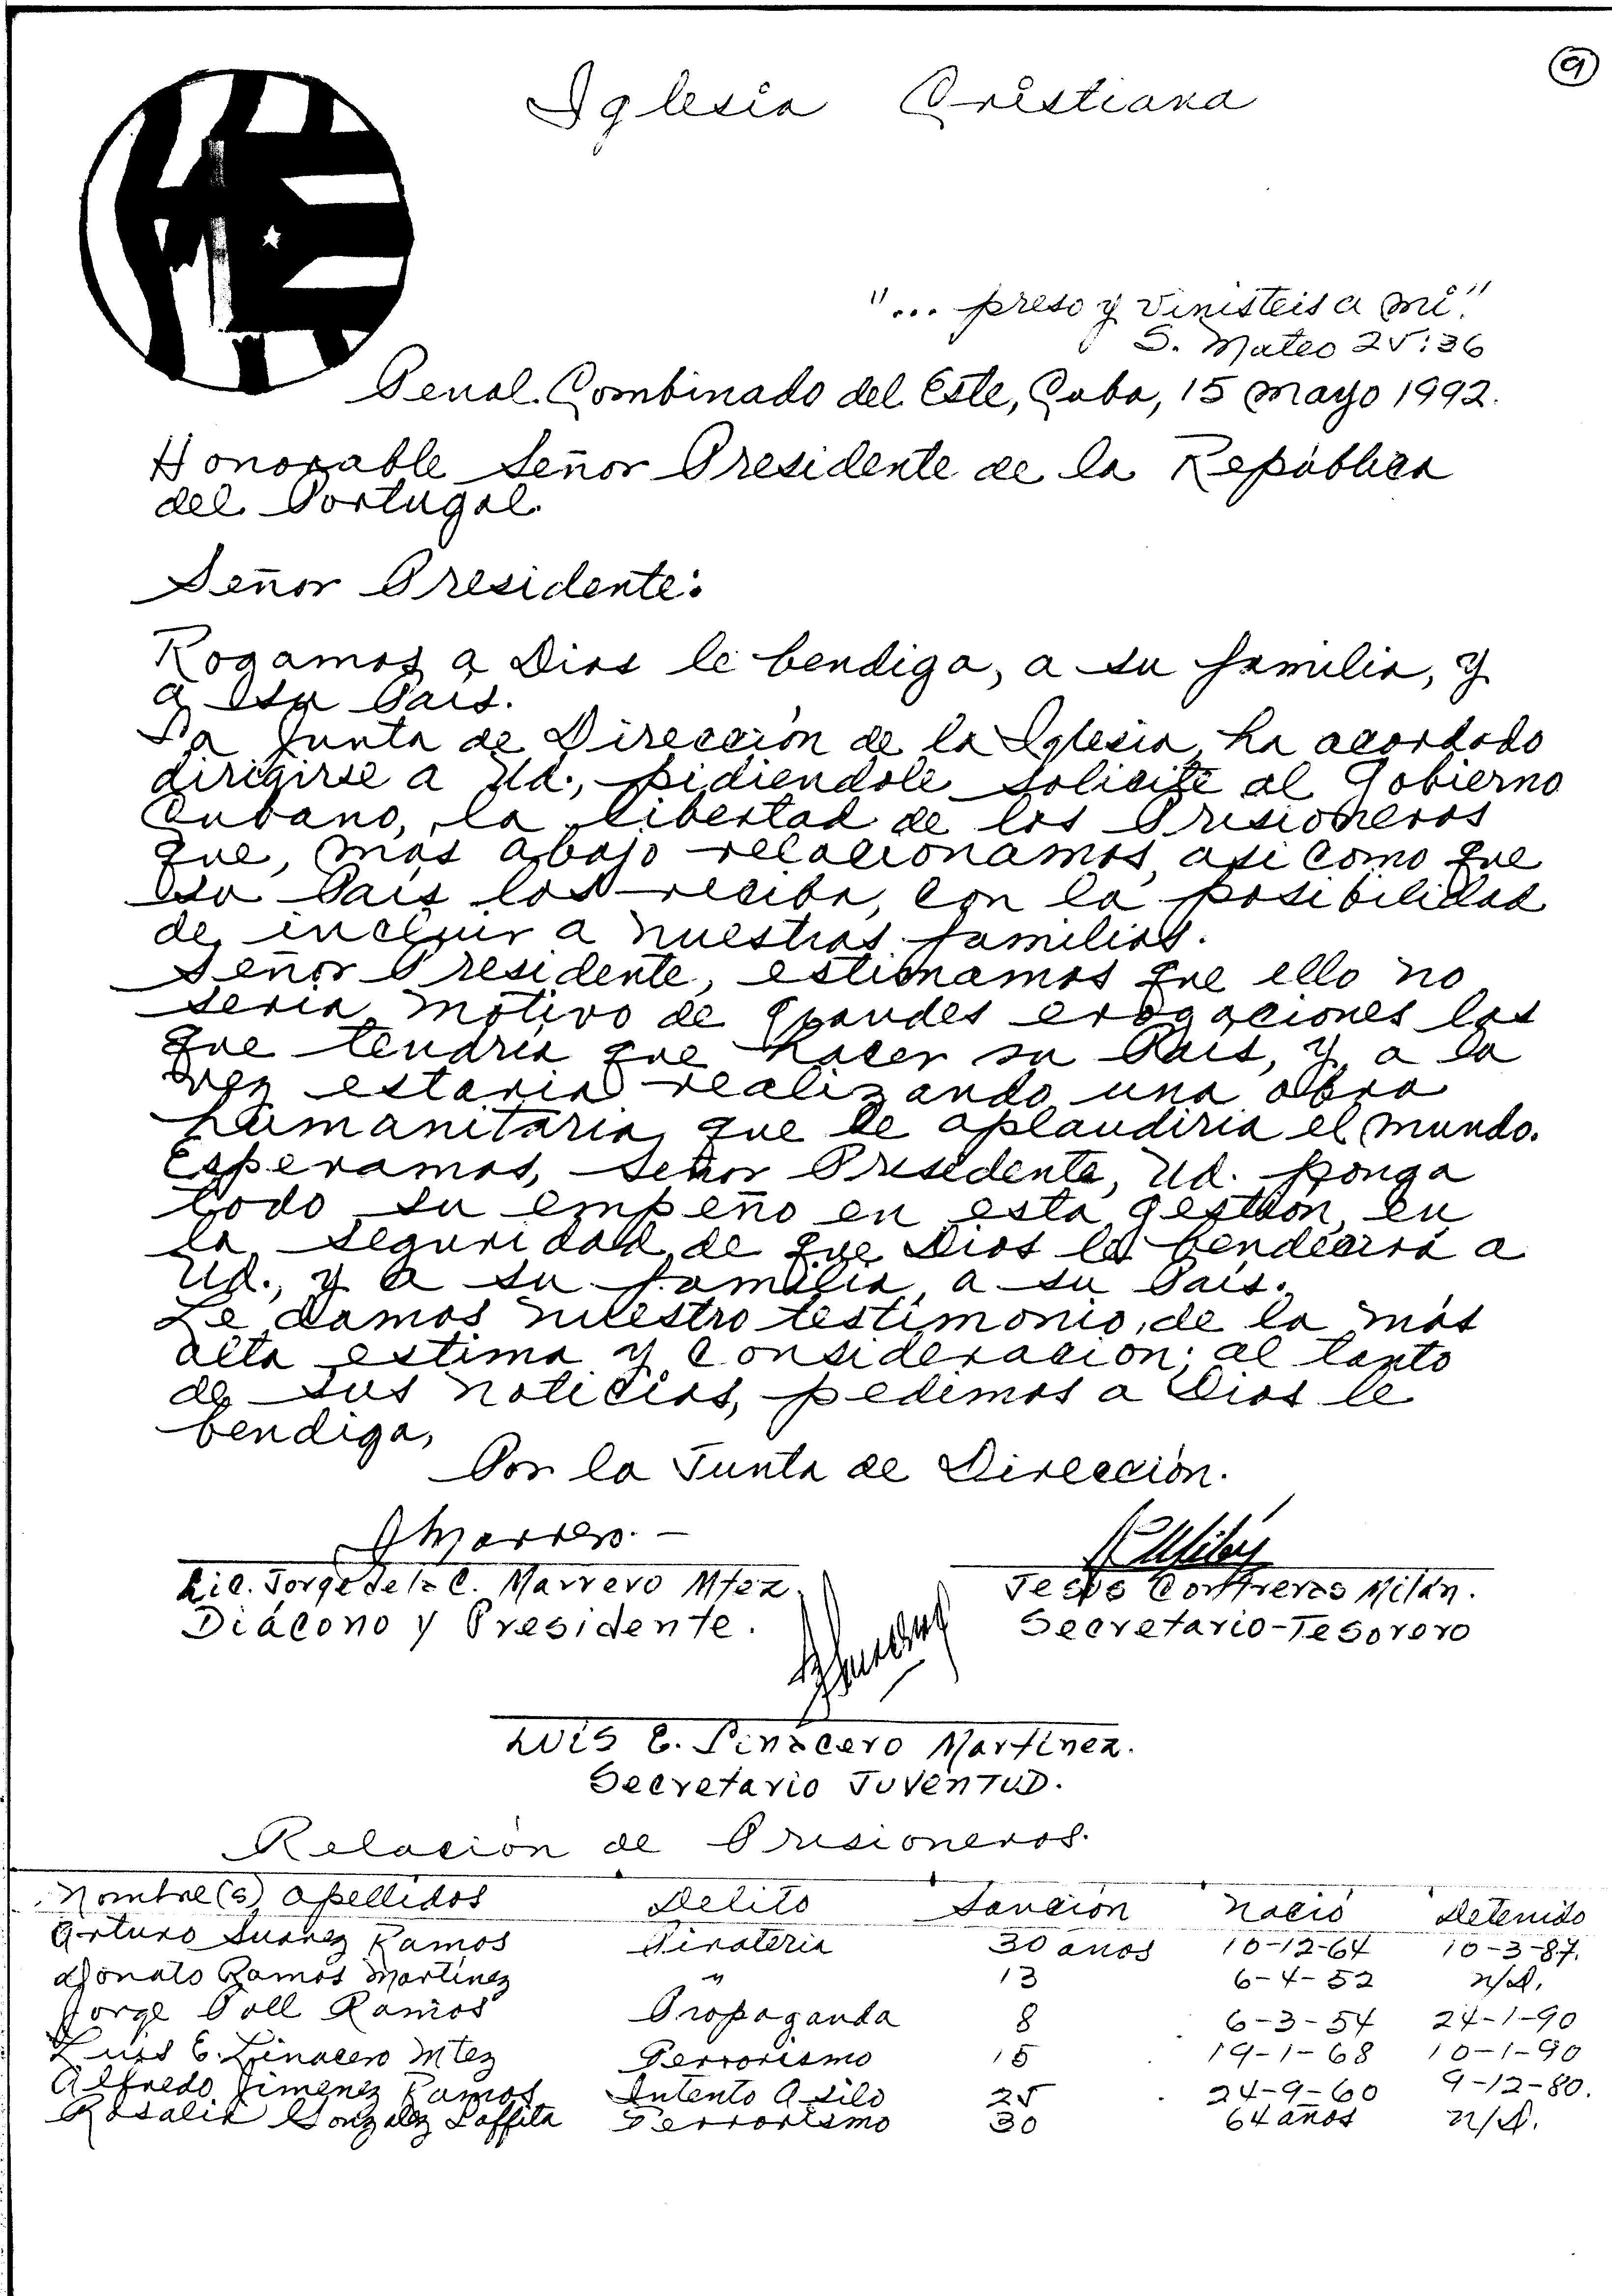 9
Iglesia Cristiana
"... preso y vinisteis a mí."
S. Mateo 25:36
Penal. Combinado del Este, Cuba, 15 mayo 1992.
Honorable Señor Presidente de la República
del Portugal.
Señor Presidente:
Rogamos a Dios le bendiga, a su familia, y
a esa País.
La Junta de Dirección de la Iglesia, ha acordado
dirigirse a Ud., pidiendole solicite al Gobierno
Cubano, la libertad de los Prisioneros
que, más abajo relacionamos, asi como que
su País los reciba, con la posibilidad
de incluir a nuestras familias.
Señor Presidente, estimamos que ello no
sería motivo de grandes erogaciones las
que tendría que hacer su País, y, a la
vez estaria realizando una obra
humanitaria, que le aplaudiria el mundo.
Esperamos, Señor Presidente, Ud. ponga
todo su empeño en esta gestión, en
la seguridad, de que Dios le bendecirá a
Ud., y a su familia, a su País.
Le damos nuestro testimonio, de la más
alta estima y consideracion; al tanto
de sus noticias, pedimos a Dios le
bendiga,
Por la Junta de Dirección.
JMarrero.-
Lic. Jorge de la C. Marrero Mtez.
Diácono y Presidente.
Jesús Contreras Milán.
Secretario-Tesorero
Luis E. Linacero Martínez.
Secretario Juventud.
Relación de Prisioneros.
Nombre(s) apellidos Delito Sanción Nació Detenido
Arturo Suárez Ramos Piratería 30 años 10-12-64 10-3-87.
Donato Ramos Martínez " 13 6-4-52 n/d.
Jorge Poll Ramos Propaganda 8 6-3-54 24-1-90
Luis E. Linacero Mtez Terrorismo 15 19-1-68 10-1-90
Alfredo Jimenez Ramos Intento Asilo 25 24-9-60 9-12-80.
Rosalia Gonzalez Laffita Terrorismo 30 64 años n/d.